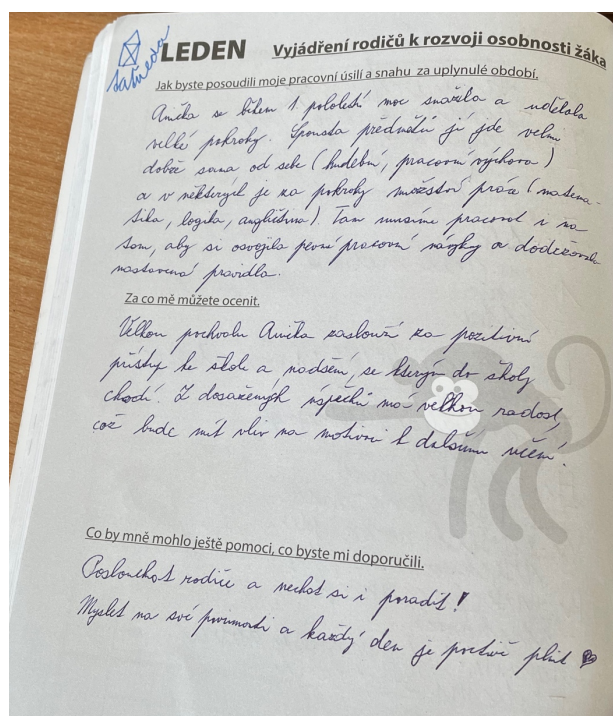 Sahěda
LEDEN Vyjádření rodičů k rozvoji osobnosti žáka
Jak byste posoudili moje pracovní úsilí a snahu za uplynulé období.
Anička se během 1. pololetí moc snažila a udělala
velké pokroky. Spousta předmětů jí jde velmi
dobře sama od sebe (hudební, pracovní výchova)
a v některých je za pokroky množství práce (matema-
tika, logika, angličtina). Tam musíme pracovat i na
tom, aby si osvojila pevné pracovní návyky a dodržovala
nastavená pravidla.
Za co mě můžete ocenit.
Velkou pochvalu Anička zaslouží za pozitivní
přístup ke škole a nadšení, se kterým do školy
chodí. Z dosažených úspěchů má velkou radost,
což bude mít vliv na motivaci k dalšímu učení.
Co by mně mohlo ještě pomoci, co byste mi doporučili.
Poslouchat rodiče a nechat si i poradit!
Myslet na své povinnosti a každý den je poctivě plnit